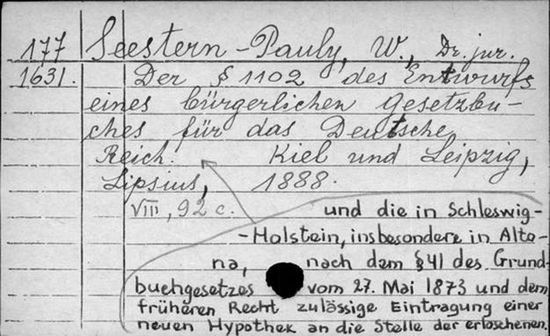 177 Seestern-Pauly, W., Dr. jur.
1631. Der § 1102 des Entwurfs
eines bürgerlichen Gesetzbu-
ches für das Deutsche
Reich. Kiel und Leipzig,
Lipsius, 1888.
VIII, 92 c.
und die in Schleswig-
-Holstein, insbesondere in Alto-
na, nach dem § 41 des Grund-
buchgesetzes vom 27. Mai 1873 und dem
früheren Recht zulässige Eintragung einer
neuen Hypothek an die Stelle der erloschenen